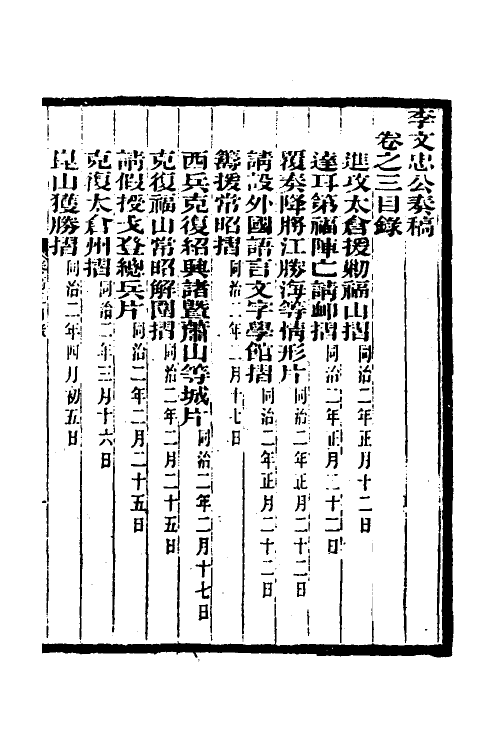 李文忠公奏稿
卷之三目錄
進攻太倉援勦福山摺同治二年正月十二日
達耳第福陣亡請卹摺同治二年正月二十二日
覆奏降將江勝海等情形片同治二年正月二十二日
請設外國語言文字學館摺同治二年正月二十二日
籌援常昭摺同治二年二月十七日
西兵克復紹興諸暨蕭山等城片同治二年二月十七日
克復福山常昭解圍摺同治二年二月二十五日
請假授戈登總兵片同治二年二月二十五日
克復太倉州摺同治二年三月十六日
崑山獲勝摺同治二年四月初五日